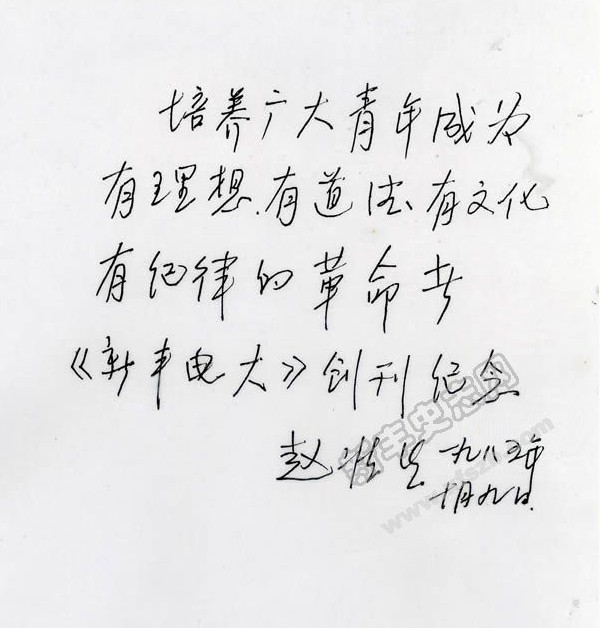 培养广大青年成为
有理想、有道德、有文化
有纪律的革命者
《新丰电大》创刊纪念
赵 一九八五年
十月九日
新丰史志网